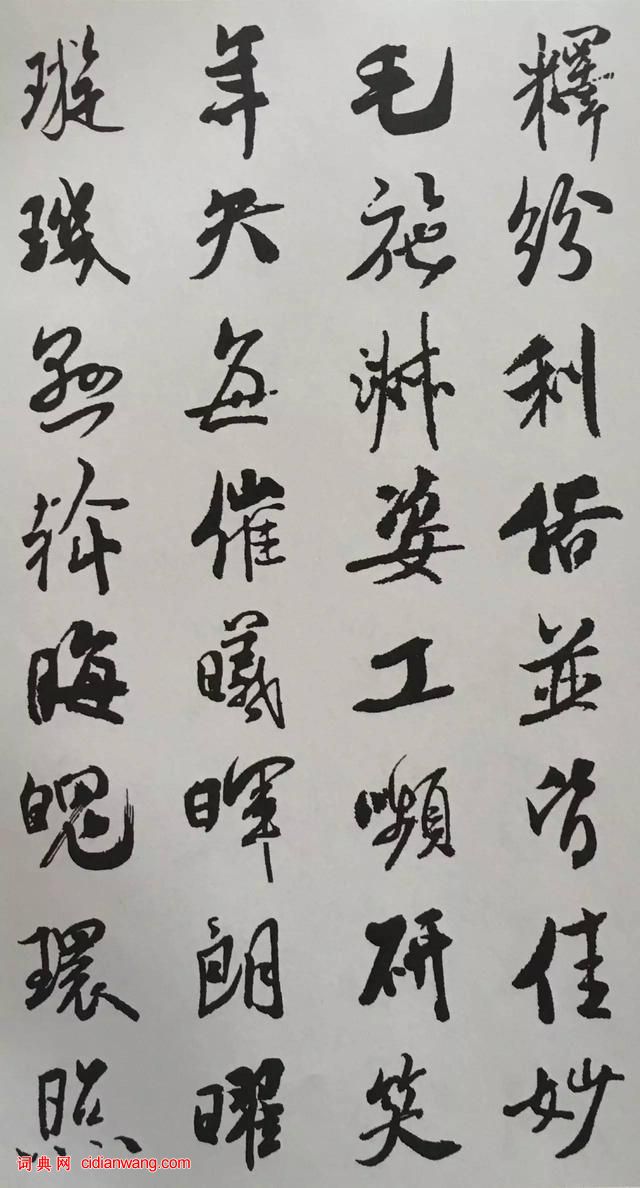 釋紛利俗並皆佳妙
毛施淑姿工嚬研笑
年矢每催曦暉朗曜
璇璣懸斡晦魄環照
词典网 cidianwang.com